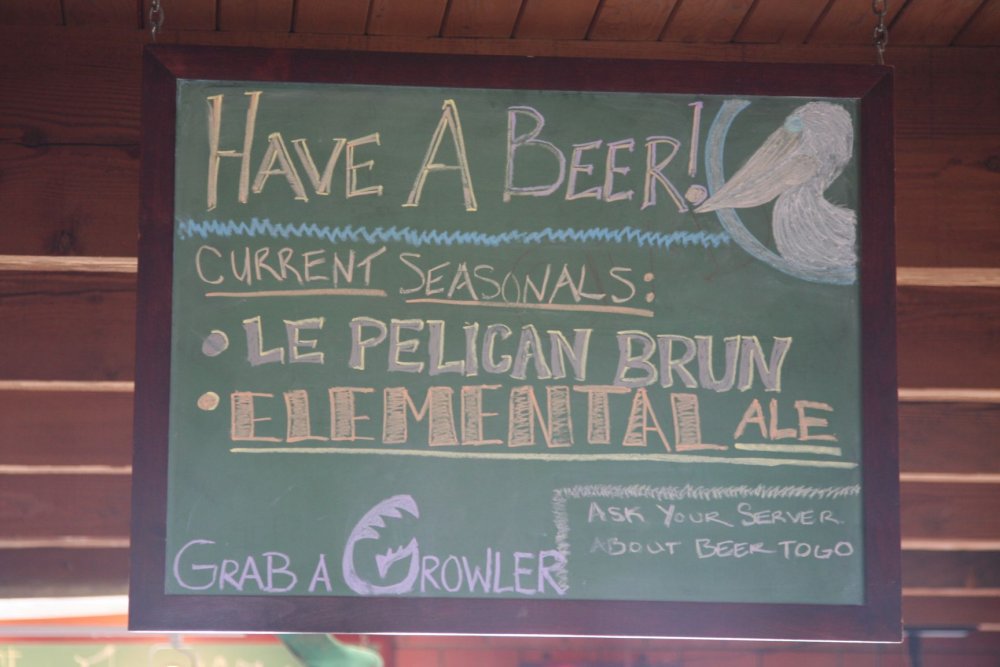 HAVE A BEER!
CURRENT SEASONALS:
• LE PELICAN BRUN
• ELEMENTAL ALE
ASK YOUR SERVER
ABOUT BEER TO GO
GRAB A GROWLER